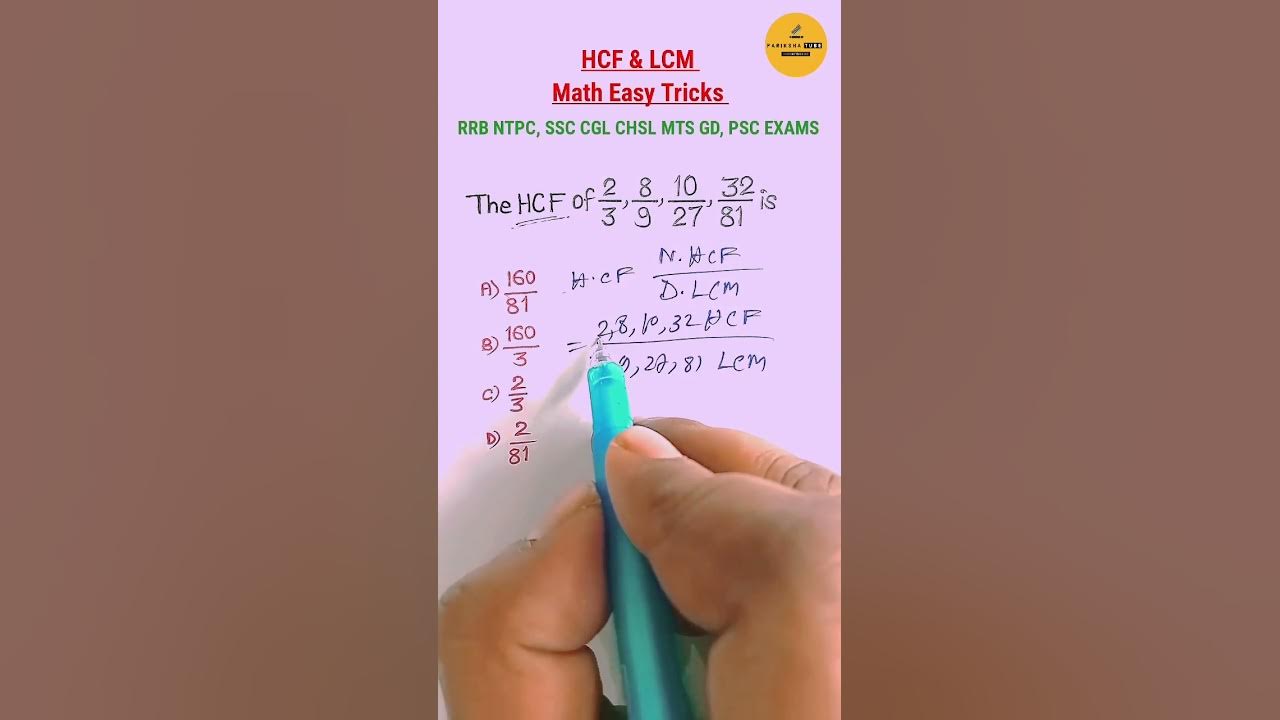 PARIKSHA TUBE
HCF & LCM
Math Easy Tricks
RRB NTPC, SSC CGL CHSL MTS GD, PSC EXAMS
The HCF of 2/3, 8/9, 10/27, 32/81 is
A) 160/81
B) 160/3
C) 2/3
D) 2/81
H.CF N.HCF/D.LCM
= 2,8,10,32 HCF
9,27,81 LCM